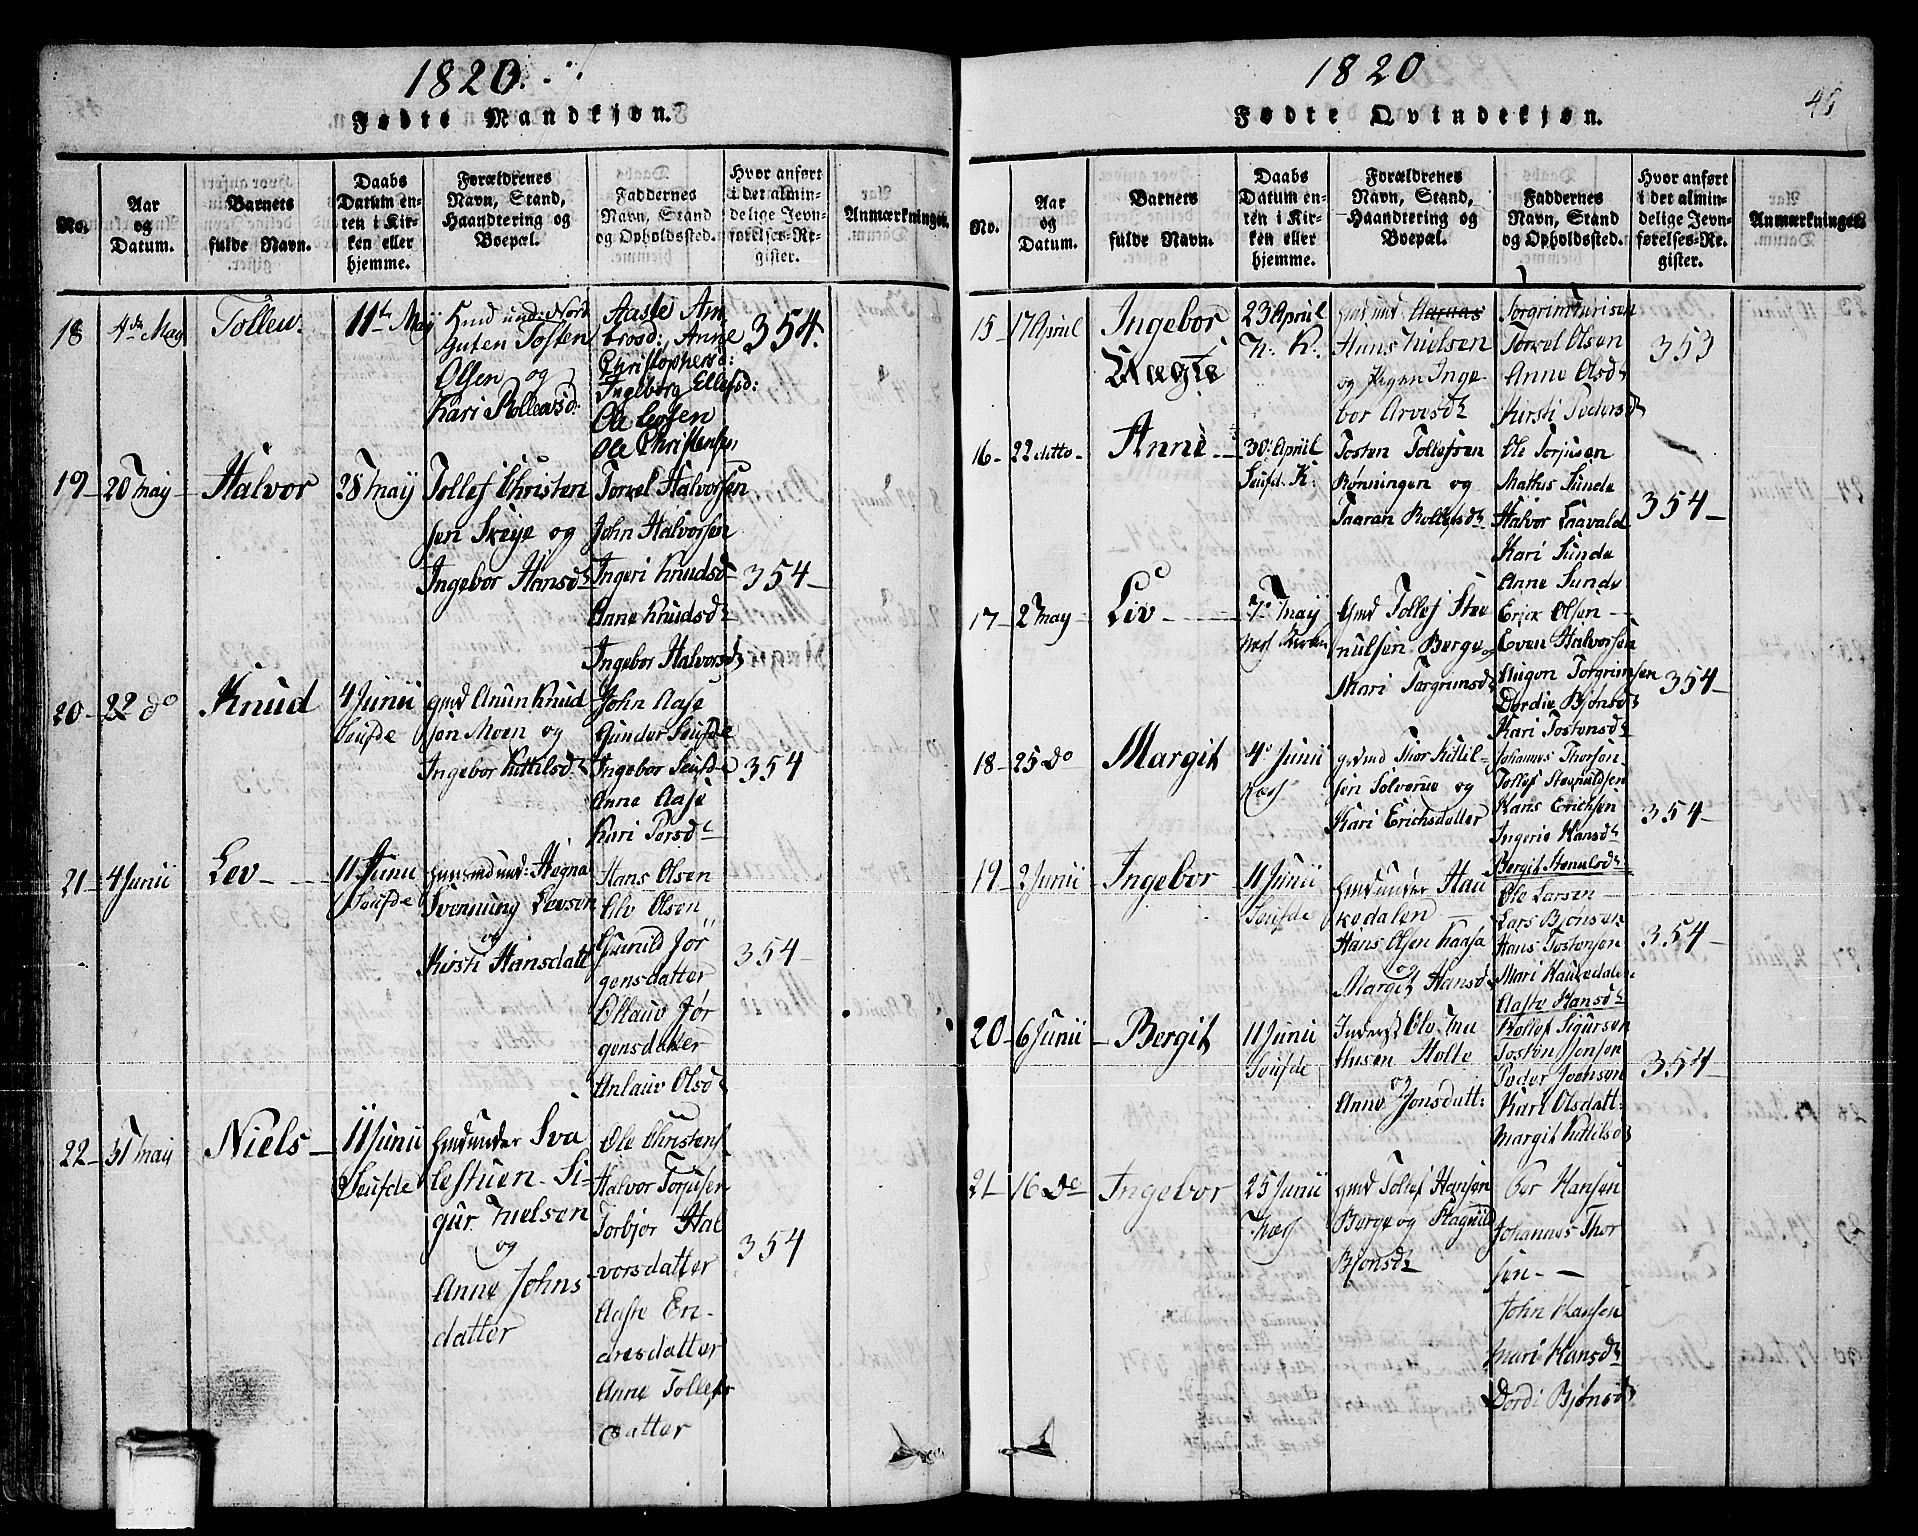 1820.
Fødte Mandkjøn.
No.
Aar
og
Datum.
Barnets
fulde Navn.
Daabs
Datum en-
ten i Kir-
ken eller
hjemme.
Forældrenes
Navn, Stand,
Haandtering og
Boepæl.
Faddernes
Navn, Stand
og Opholdssted.
Hvor anført
i det almin-
delige Jevn-
førelses-Re-
gister.
Anmærkninger.
18
4de May
Tollew.
11te Maij
Olsen og
Aaste Am
brosd: Anne
Christophersd:
Ingeborg Ellefsd:
Ole Christensen
354.
19-
20 May
Halvor
28 Maij
Tollef Christen
sen Skeije og
Ingebor Hansdr
Torkel Halvorsen
John Halvorsen
Ingeri Knudsd
Anne Knudsdr
Ingebor Halvorsdr
354-
20-
22 do
Knud
4 Junii
Seufde
gmd Anun Knud
sen Moen og
Ingebor Kittilsdr
John Aase
Gunder Seufde
Ingebor Seufde
Anne Aase
Kari Torsdr
354
21-
4 Junii
Lev-
11 Junii
Seufde
Svennung Levson
og
Kirsti Hansdatt
Hans Olsen
Olv Olsen
Gunild Jør
gensdatter
Ollauv Jør
gensdatter
Anlauv Olsdr
354-
22-
31 May
Niels-
11 Junii
Seufde
Husmd under Sva
lestuen Si-
gur Nielson
og
Anne Johns
datter
Ole Christens
Halvor Torjusen
Torbjør Hal
vorsdatter
Aaste En-
dresdatter
Anne Tollefs
datter
354
1820
45
Fødte Qvindekjøn.
No.
Aar
og
Datum.
Barnets
fulde Navn.
Daabs
Datum en-
ten i Kir-
ken eller
hjemme.
Forældrenes
Navn, Stand,
Haandtering og
Boepæl.
Faddernes
Navn, Stand
og Opholdssted.
Hvor anført
i det almin-
delige Jevn-
førelses-Re-
gister.
Anmærkninger
15
17 April
Ingebor
Uægte
23 April
N: K:
Hans Nielsen
og Pigen Inge
bor Arvesdr
Torkel Olsen
Anne Olsdr
Kirsti Pedersdr
353
16-
22 ditto-
Anne
30: April
Seufd. K:
Tosten Tollefsen
Rønningen og
Taaran Rollefsdr
Ole Torjusen
Mathis Sunde
Halvor Laavald
Kari Sunde
Anne Sunde
354-
17-
2 May
Liv
7de Maij
Næs Kirken
Gmd Tollef Ste
nulsen Berge og
Mari Torgrimsdr
Erik Olsen
Even Halvorsen
Augon Torgrimsen
Dordie Bjønsdr
Kari Tostensdr
354-
18-
25 do
Margit
4de Junii
Næs
gaamd Thor Kittil-
sen Solverue og
Kari Erichsdatter
Johannes Thorsen
Tollef Stegnuldsen
Hans Erichsen
Ingerie Hansdr
Bergit Stenulsdr
354-
19-
2 Junii
Ingebor
11 Junii
Seufde
Husmd under Hau
kedalen-
Hans Olsen Haasa
og
Margit Hansdr
Ole Larsen
Lars Bjønsen
Hans Tostensen
Mari Haukedalen
Aaste Hansdr
354-
20-
6 Junii
-Bergit
11 Junii
Seufde
Inderst Olv Ma
thisen Holte
og
Anne Jonsdatt:
Rollef Sigursen
Tosten Jensen
Peder Jochsen
Kari Olsdatt:
Margit Kittilsdr
354-
21-
16 do
Ingebor
25 Junii
Næs
gmd Tollef Hansen
Berge og Ragnild
Bjønsdr
Per Hansen
Johannes Thor
sen-
John Hansen
Mari Hansdr
Dordi Bjønsdr